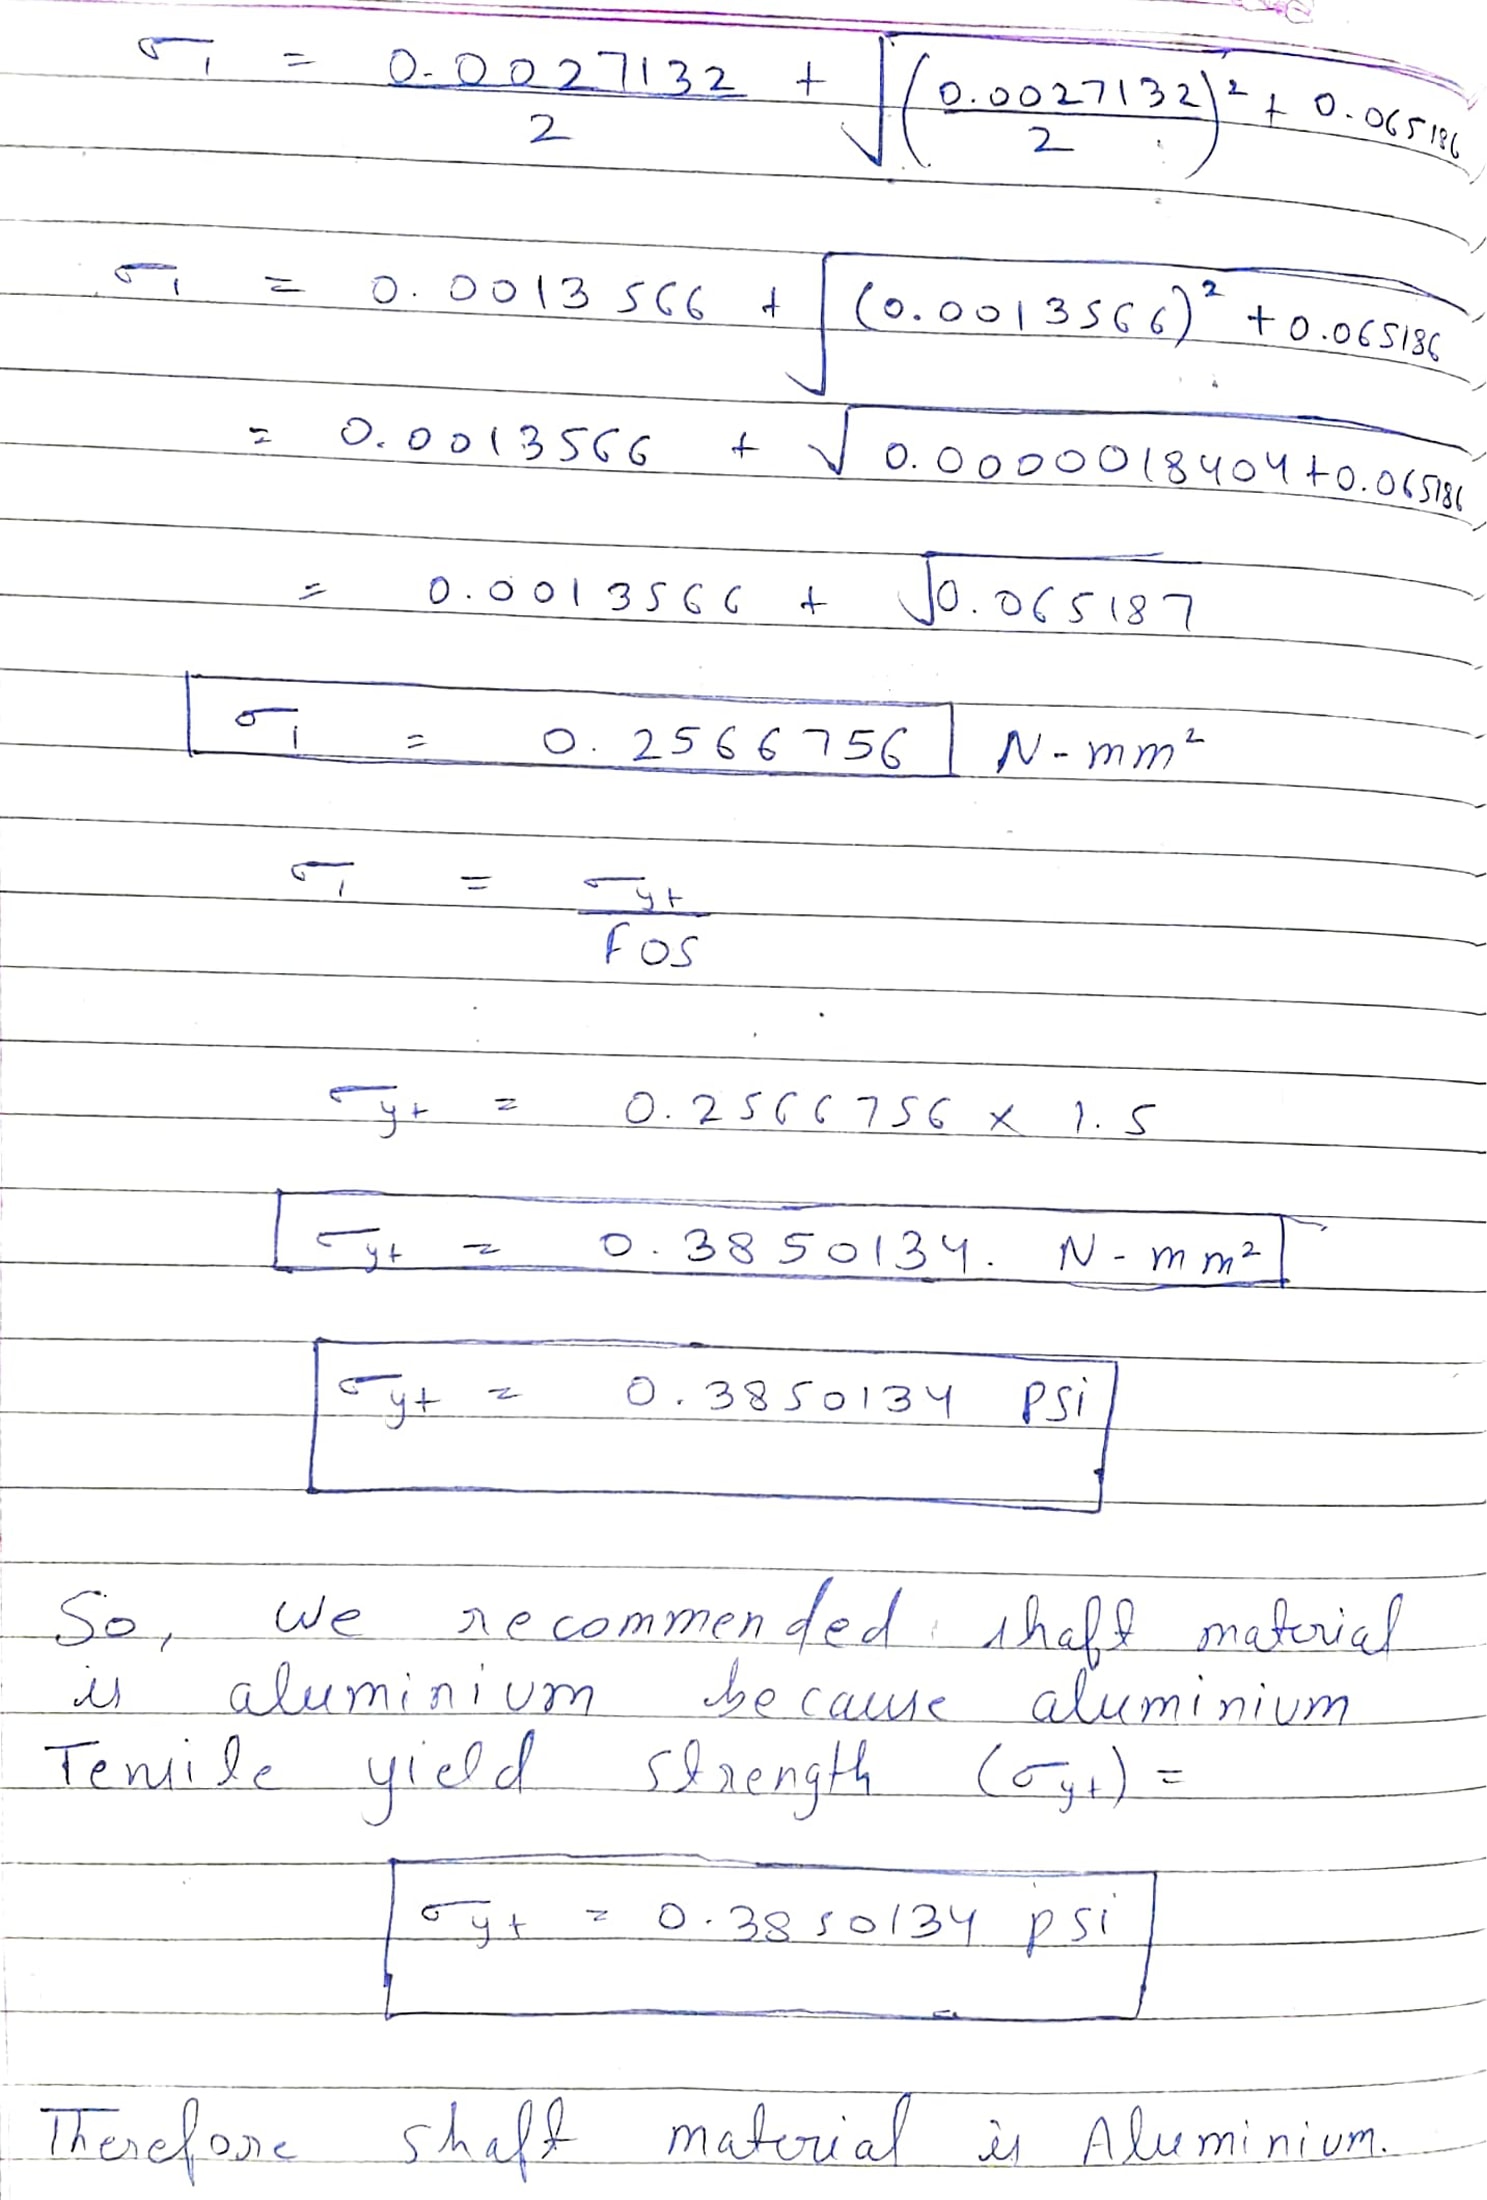 σ₁ = 0.0027132/2 + √((0.0027132/2)² + 0.065186
σ₁ = 0.0013566 + √(0.0013566)² + 0.065186
= 0.0013566 + √0.0000018404 + 0.065186
= 0.0013566 + √0.065187
σ₁ = 0.2566756 N-mm²
σ₁ = σyt/FOS
σyt = 0.2566756 × 1.5
σyt = 0.3850134. N-mm²
σyt = 0.3850134 psi
So, we recommended shaft material
is aluminium because aluminium
Tensile yield strength (σyt) =
σyt = 0.3850134 psi
Therefore shaft material is Aluminium.